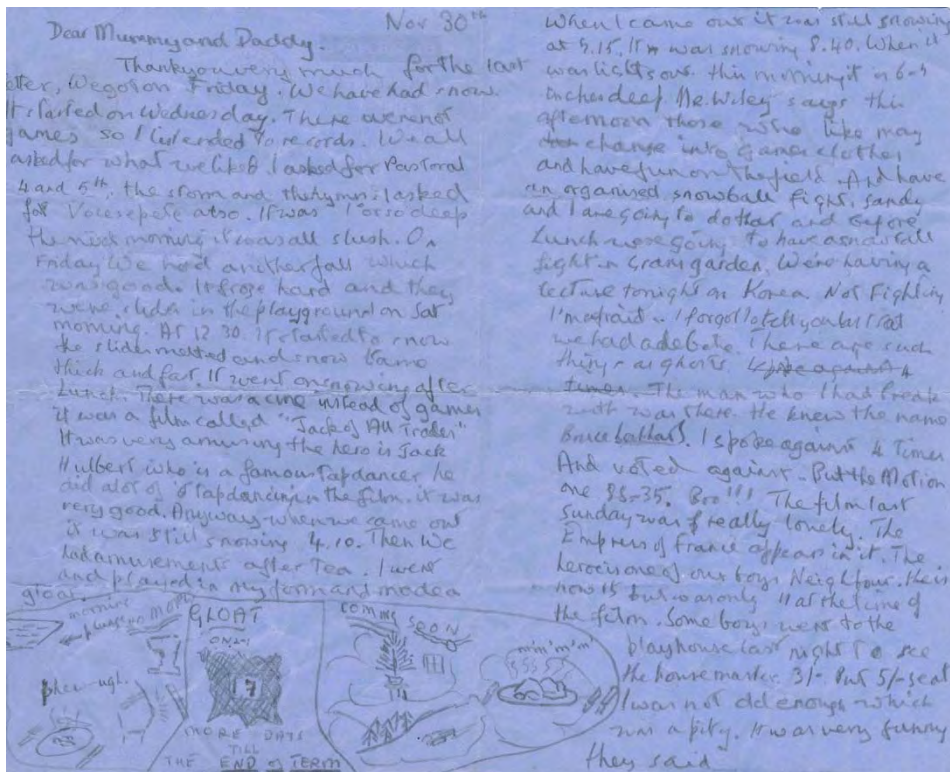 Nov 30th
Dear Mummy and Daddy.
Thankyou very much for the last
etter, We got on Friday. We have had snow.
It started on Wednesday. There were not
games so I listended to records. We all
asked for what we liked I asked for Pastoral
4 and 5th. the storm and the hymn. I asked
for also. It was 1" or so deep
the next morning it was all slush. On
Friday We had another fall which
was good. It froze hard and they
were slides in the playground on Sat
morning. At 12.30. it started to snow
the slides melted and snow came
thick and fast. It went on snowing after
Lunch. There was a cine instead of games
it was a film called "Jack of All Trades"
It was very amusing the hero is Jack
Hulbert who is a famous tapdancer he
did alot of tapdancing in the film. it was
very good. Anyway when we came out
it was still snowing 4.10. Then We
had amusements after Tea. I went
and played in my form and made a
gloat.
morning
plunge no MORE
phew-ugh.
GLOAT
ONLY
17
MORE DAYS
TILL
THE END of TERM
COMING SOON
m'm'm'm'
When I came out it was still snowing
at 5.15, It was snowing 8.40. When it
was lights out. this morning it is 6-7
inches deep. Mr. Wiley says this
afternoon those who like may
change into games clothes
and have fun on the field. And have
an organised snowball fight. Sandy
and I are going to do that, and before
Lunch we are going to have a snowball
fight in Grans garden. We're having a
lecture tonight on Korea. Not Fighting
I'm afraid.. I forgot to tell you last Sat
we had a debate. There are such
things as ghosts. I spoke against 4
times. The man who I had Break
with was there. He knew the name
Bruce I spoke against 4 times
And voted against. But the Motion
one 88-35. Boo!!! The film last
Sunday was really lovely. The
Empress of France appears in it. The
hero is one of our boys Neighbour. he is
now 15 but was only 11 at the time of
the film. Some boys went to the
playhouse last night to see
the housemaster 3/- But 5/- seat
I was not old enough which
was a pity. It was very funny
they said